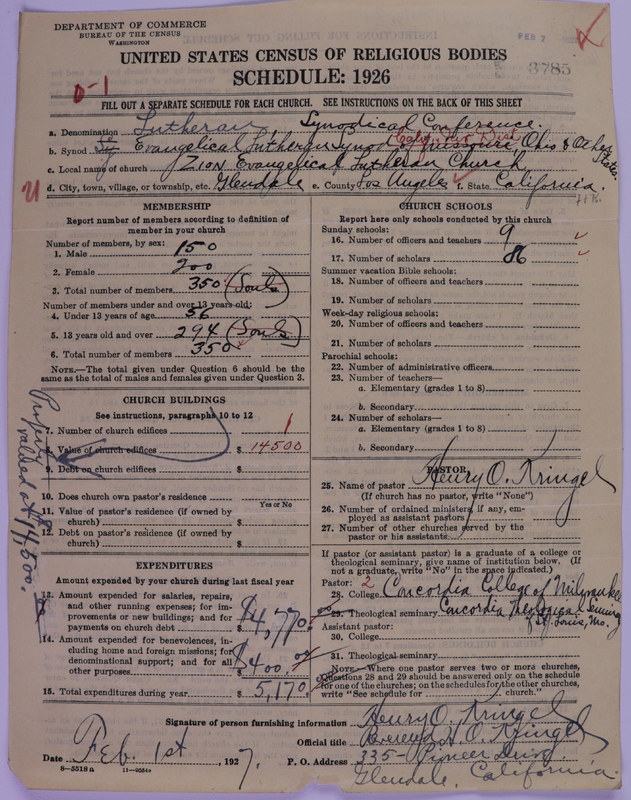 DEPARTMENT OF COMMERCE
BUREAU OF THE CENSUS
WASHINGTON
FEB 7
3785
UNITED STATES CENSUS OF RELIGIOUS BODIES
SCHEDULE: 1926
0-1
FILL OUT A SEPARATE SCHEDULE FOR EACH CHURCH. SEE INSTRUCTIONS ON THE BACK OF THIS SHEET
a. Denomination Lutheran, Synodical Conference.
Calif. Dist.
b. Synod Evangelical Lutheran Synod of Missouri, Ohio & Other States.
c. Local name of church Zion Evangelical Lutheran Church
d. City, town, village, or township, etc. Glendale e. County Los Angeles f. State California.
MEMBERSHIP
Report number of members according to definition of member in your church
Number of members, by sex:
1. Male 150
2. Female 200
3. Total number of members 350 (Souls)
Number of members under and over 13 years old:
4. Under 13 years of age 56
5. 13 years old and over 294 (Souls)
6. Total number of members 350
NOTE.—The total given under Question 6 should be the same as the total of males and females given under Question 3.
CHURCH BUILDINGS
See instructions, paragraphs 10 to 12
7. Number of church edifices 1
8. Value of church edifices $ 14500
9. Debt on church edifices $
Property valued at $14,500.
10. Does church own pastor's residence
Yes or No
11. Value of pastor's residence (if owned by church) $
12. Debt on pastor's residence (if owned by church) $
EXPENDITURES
Amount expended by your church during last fiscal year
13. Amount expended for salaries, repairs, and other running expenses; for improvements or new buildings; and for payments on church debt $4,770.00
14. Amount expended for benevolences, including home and foreign missions; for denominational support; and for all other purposes $400.00
15. Total expenditures during year $ 5,170
CHURCH SCHOOLS
Report here only schools conducted by this church
Sunday schools:
16. Number of officers and teachers 9
17. Number of scholars 86
Summer vacation Bible schools:
18. Number of officers and teachers
19. Number of scholars
Week-day religious schools:
20. Number of officers and teachers
21. Number of scholars
Parochial schools:
22. Number of administrative officers
23. Number of teachers—
a. Elementary (grades 1 to 8)
b. Secondary
24. Number of scholars—
a. Elementary (grades 1 to 8)
b. Secondary
PASTOR
25. Name of pastor Henry O. Kringel
(If church has no pastor, write "None")
26. Number of ordained ministers, if any, employed as assistant pastors
27. Number of other churches served by the pastor or his assistants
If pastor (or assistant pastor) is a graduate of a college or theological seminary, give name of institution below. (If not a graduate, write "No" in the space indicated.)
Pastor: 2
28. College Concordia College of Milwaukee
29. Theological seminary Concordia Theological Seminary of St. Louis, Mo.
Assistant pastor:
30. College
31. Theological seminary
NOTE.—Where one pastor serves two or more churches, Questions 28 and 29 should be answered only on the schedule for one of the churches; on the schedules for the other churches, write "See schedule for church."
Signature of person furnishing information Henry O. Kringel
Official title Reverend H O Kringel
Date Feb. 1st, 1927. P. O. Address 335 - Pioneer Drive
Glendale, California.
8—5518a 11—9034